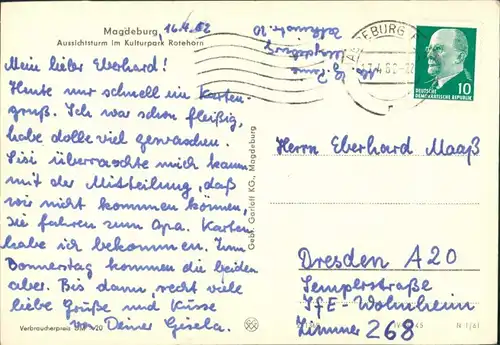 Magdeburg,
16.4.62
Aussichtsturm im Kulturpark Rotehorn
Mein lieber Eberhard!
Heute nur schnell ein Karten-
gruß. Ich war schon fleißig,
habe dolle viel gewaschen.
Sisi überraschte mich kaum
mit der Mitteilung, daß
wir nicht kommen können,
sie fahren zum Opa. Karten
habe ich bekommen. Zum
Donnerstag kommen die beiden
aber. Bis dann, recht viele
liebe Grüße und Küsse
von Deiner Gisela.
Verbraucherpreis
Gebr. Garloff KG., Magdeburg
Magdeburg
DEUTSCHE
DEMOKRATISCHE REPUBLIK
10
Herrn Eberhard Maaß
Dresden A20
Semperstraße
IfE-Wohnheim
Zimmer 268